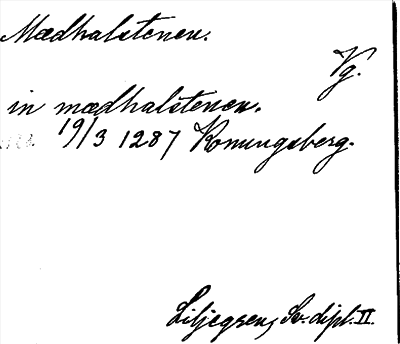 Mædhalstenen.
Vg.
in mædhalstenen.
19/3 1287 Konungsberg.
Liljegren, Sv. dipl. II.